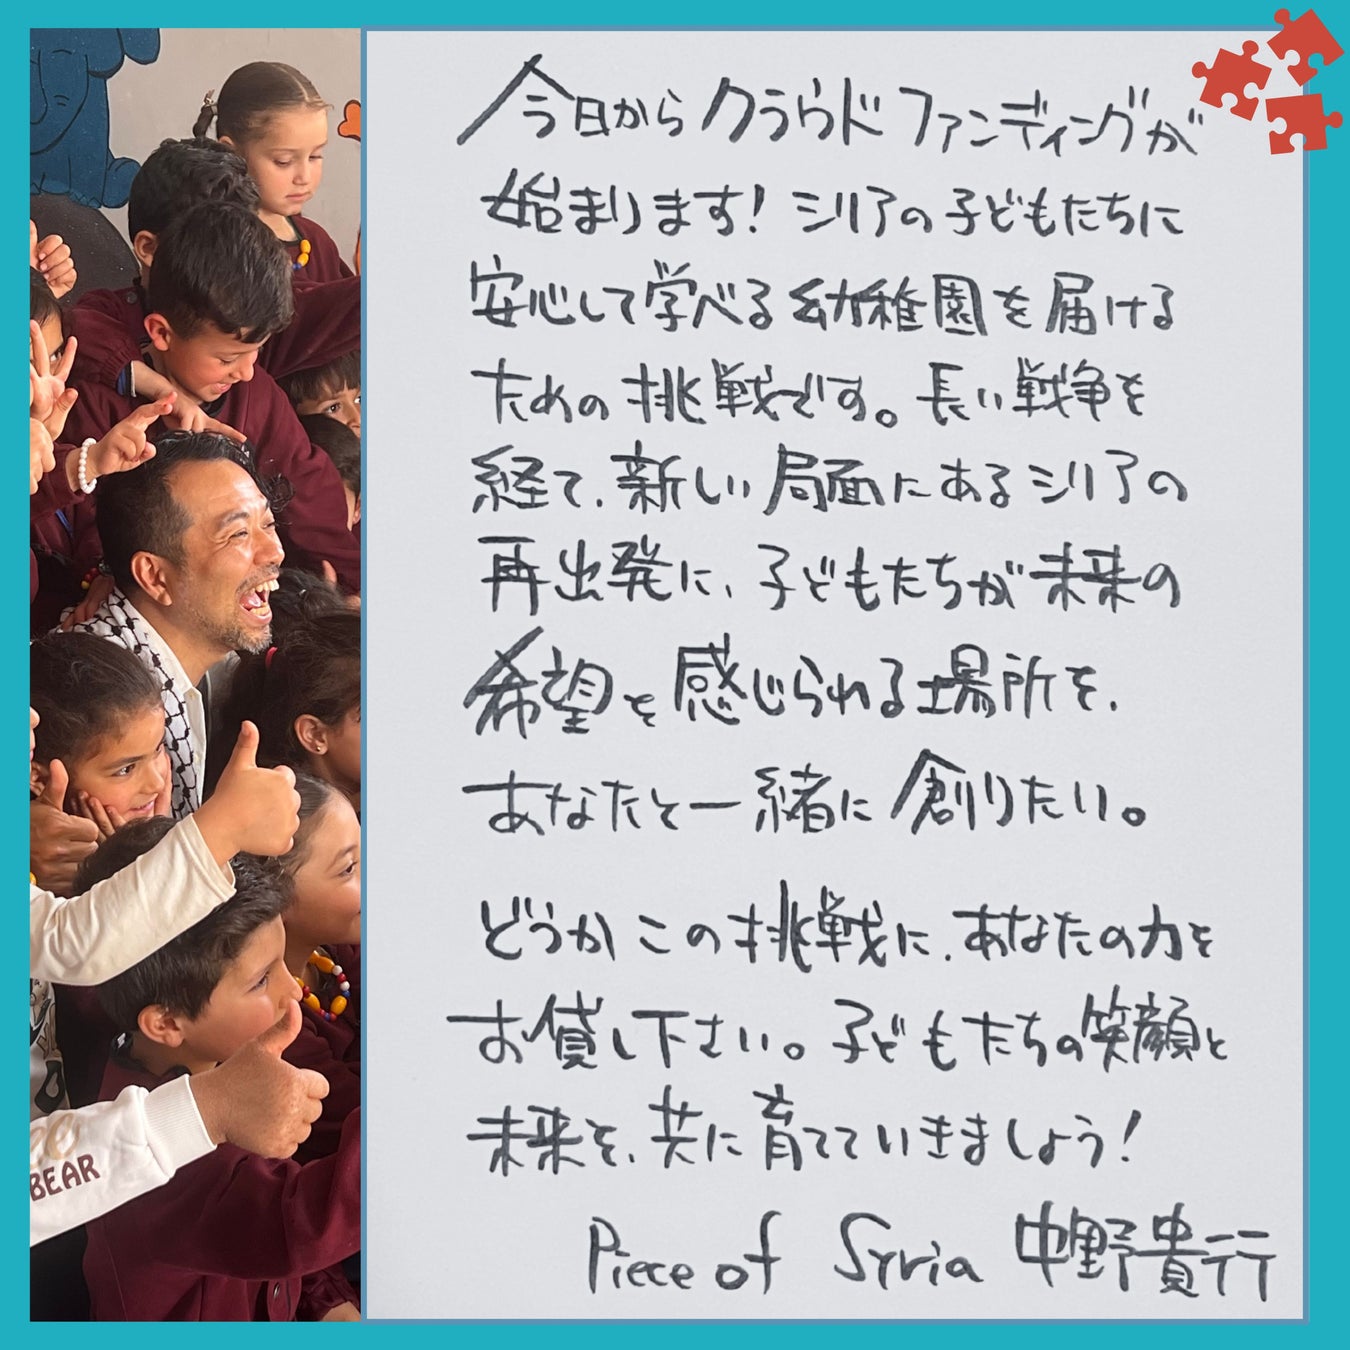 今日からクラウドファンディングが
始まります！シリアの子どもたちに
安心して学べる幼稚園を届ける
ための挑戦です。長い戦争を
経て、新しい局面にあるシリアの
再出発に、子どもたちが未来の
希望を感じられる場所を、
あなたと一緒に創りたい。
どうかこの挑戦に、あなたの力を
お貸し下さい。子どもたちの笑顔と
未来を、共に育てていきましょう！
Piece of Syria 中野貴行
BEAR